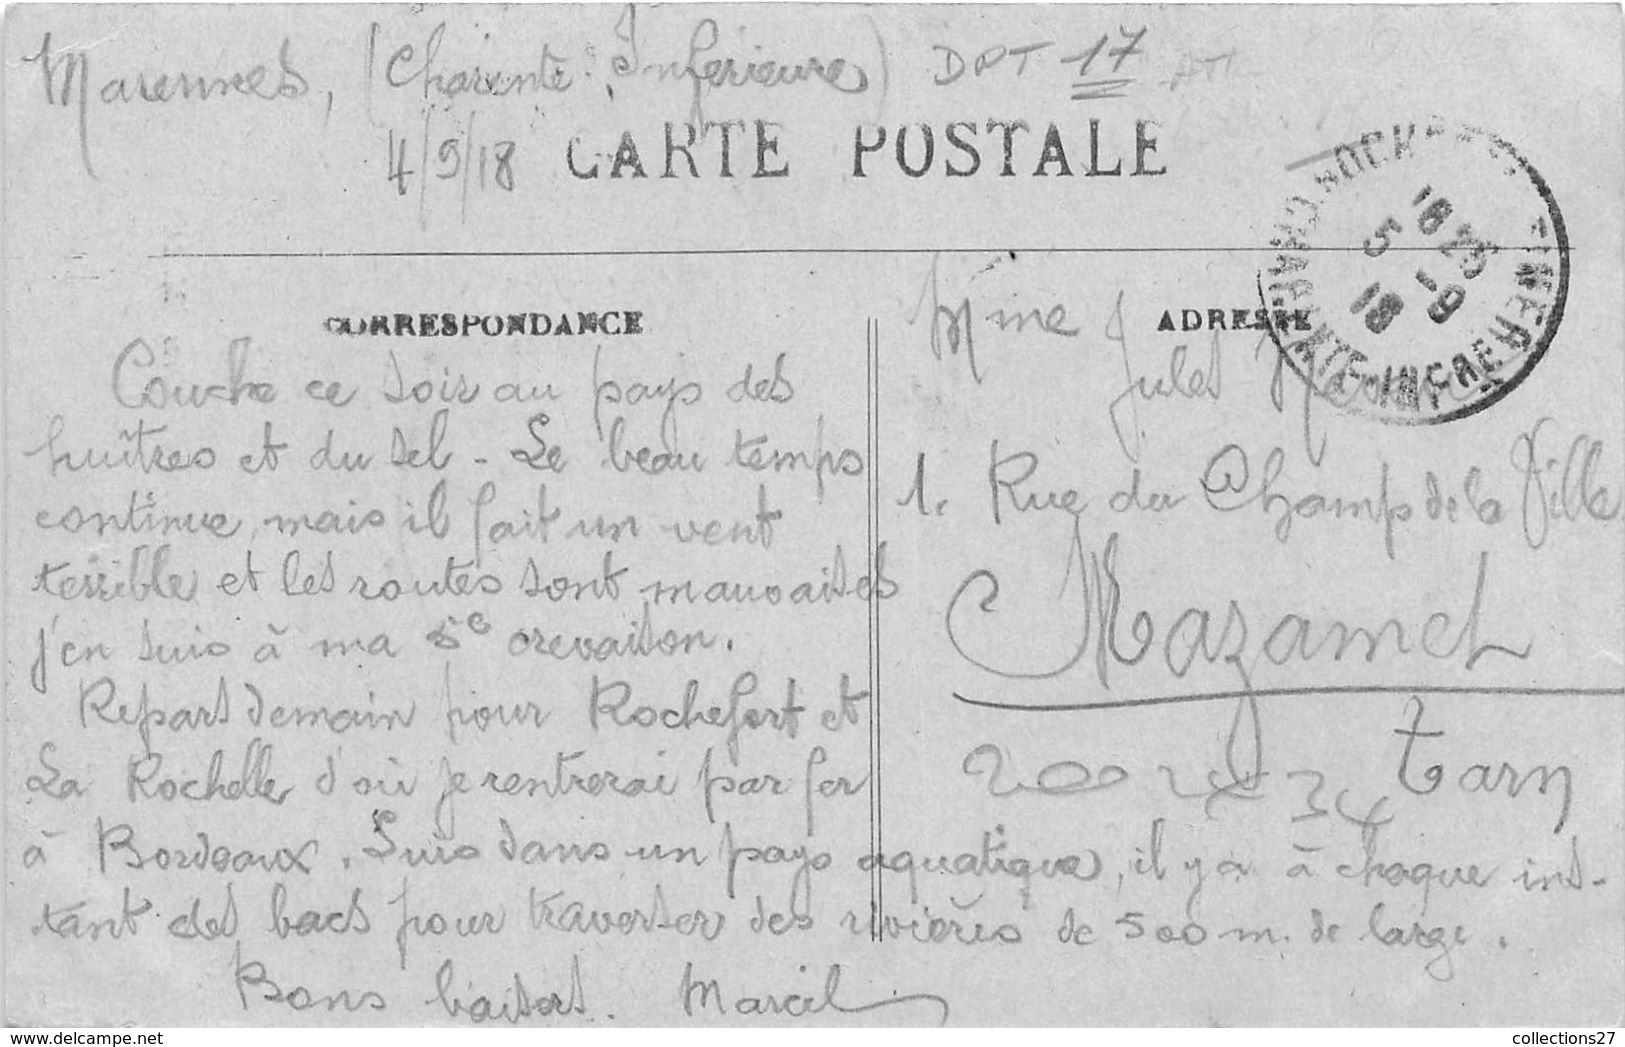 Marennes, (Charente Inférieure) DPT 17
4/9/18 CARTE POSTALE
CORRESPONDANCE
Couche ce soir au pays des
huîtres et du sel - Le beau temps
continue, mais il fait un vent
terrible et les routes sont mauvaises
j'en suis à ma 5e crevaison.
Repart demain pour Rochefort et
La Rochelle d'où je rentrerai par fer
à Bordeaux. Suis dans un pays aquatique, il y a à chaque ins-
tant des bacs pour traverser des rivières de 500 m. de large.
Bons baisers. Marcel
ADRESSE
Mme Jules
1. Rue du Champ de la Ville
Mazamet
Tarn
18 25
5 -9
18
CHARENTE-INFRE
collections27
www.delcampe.net